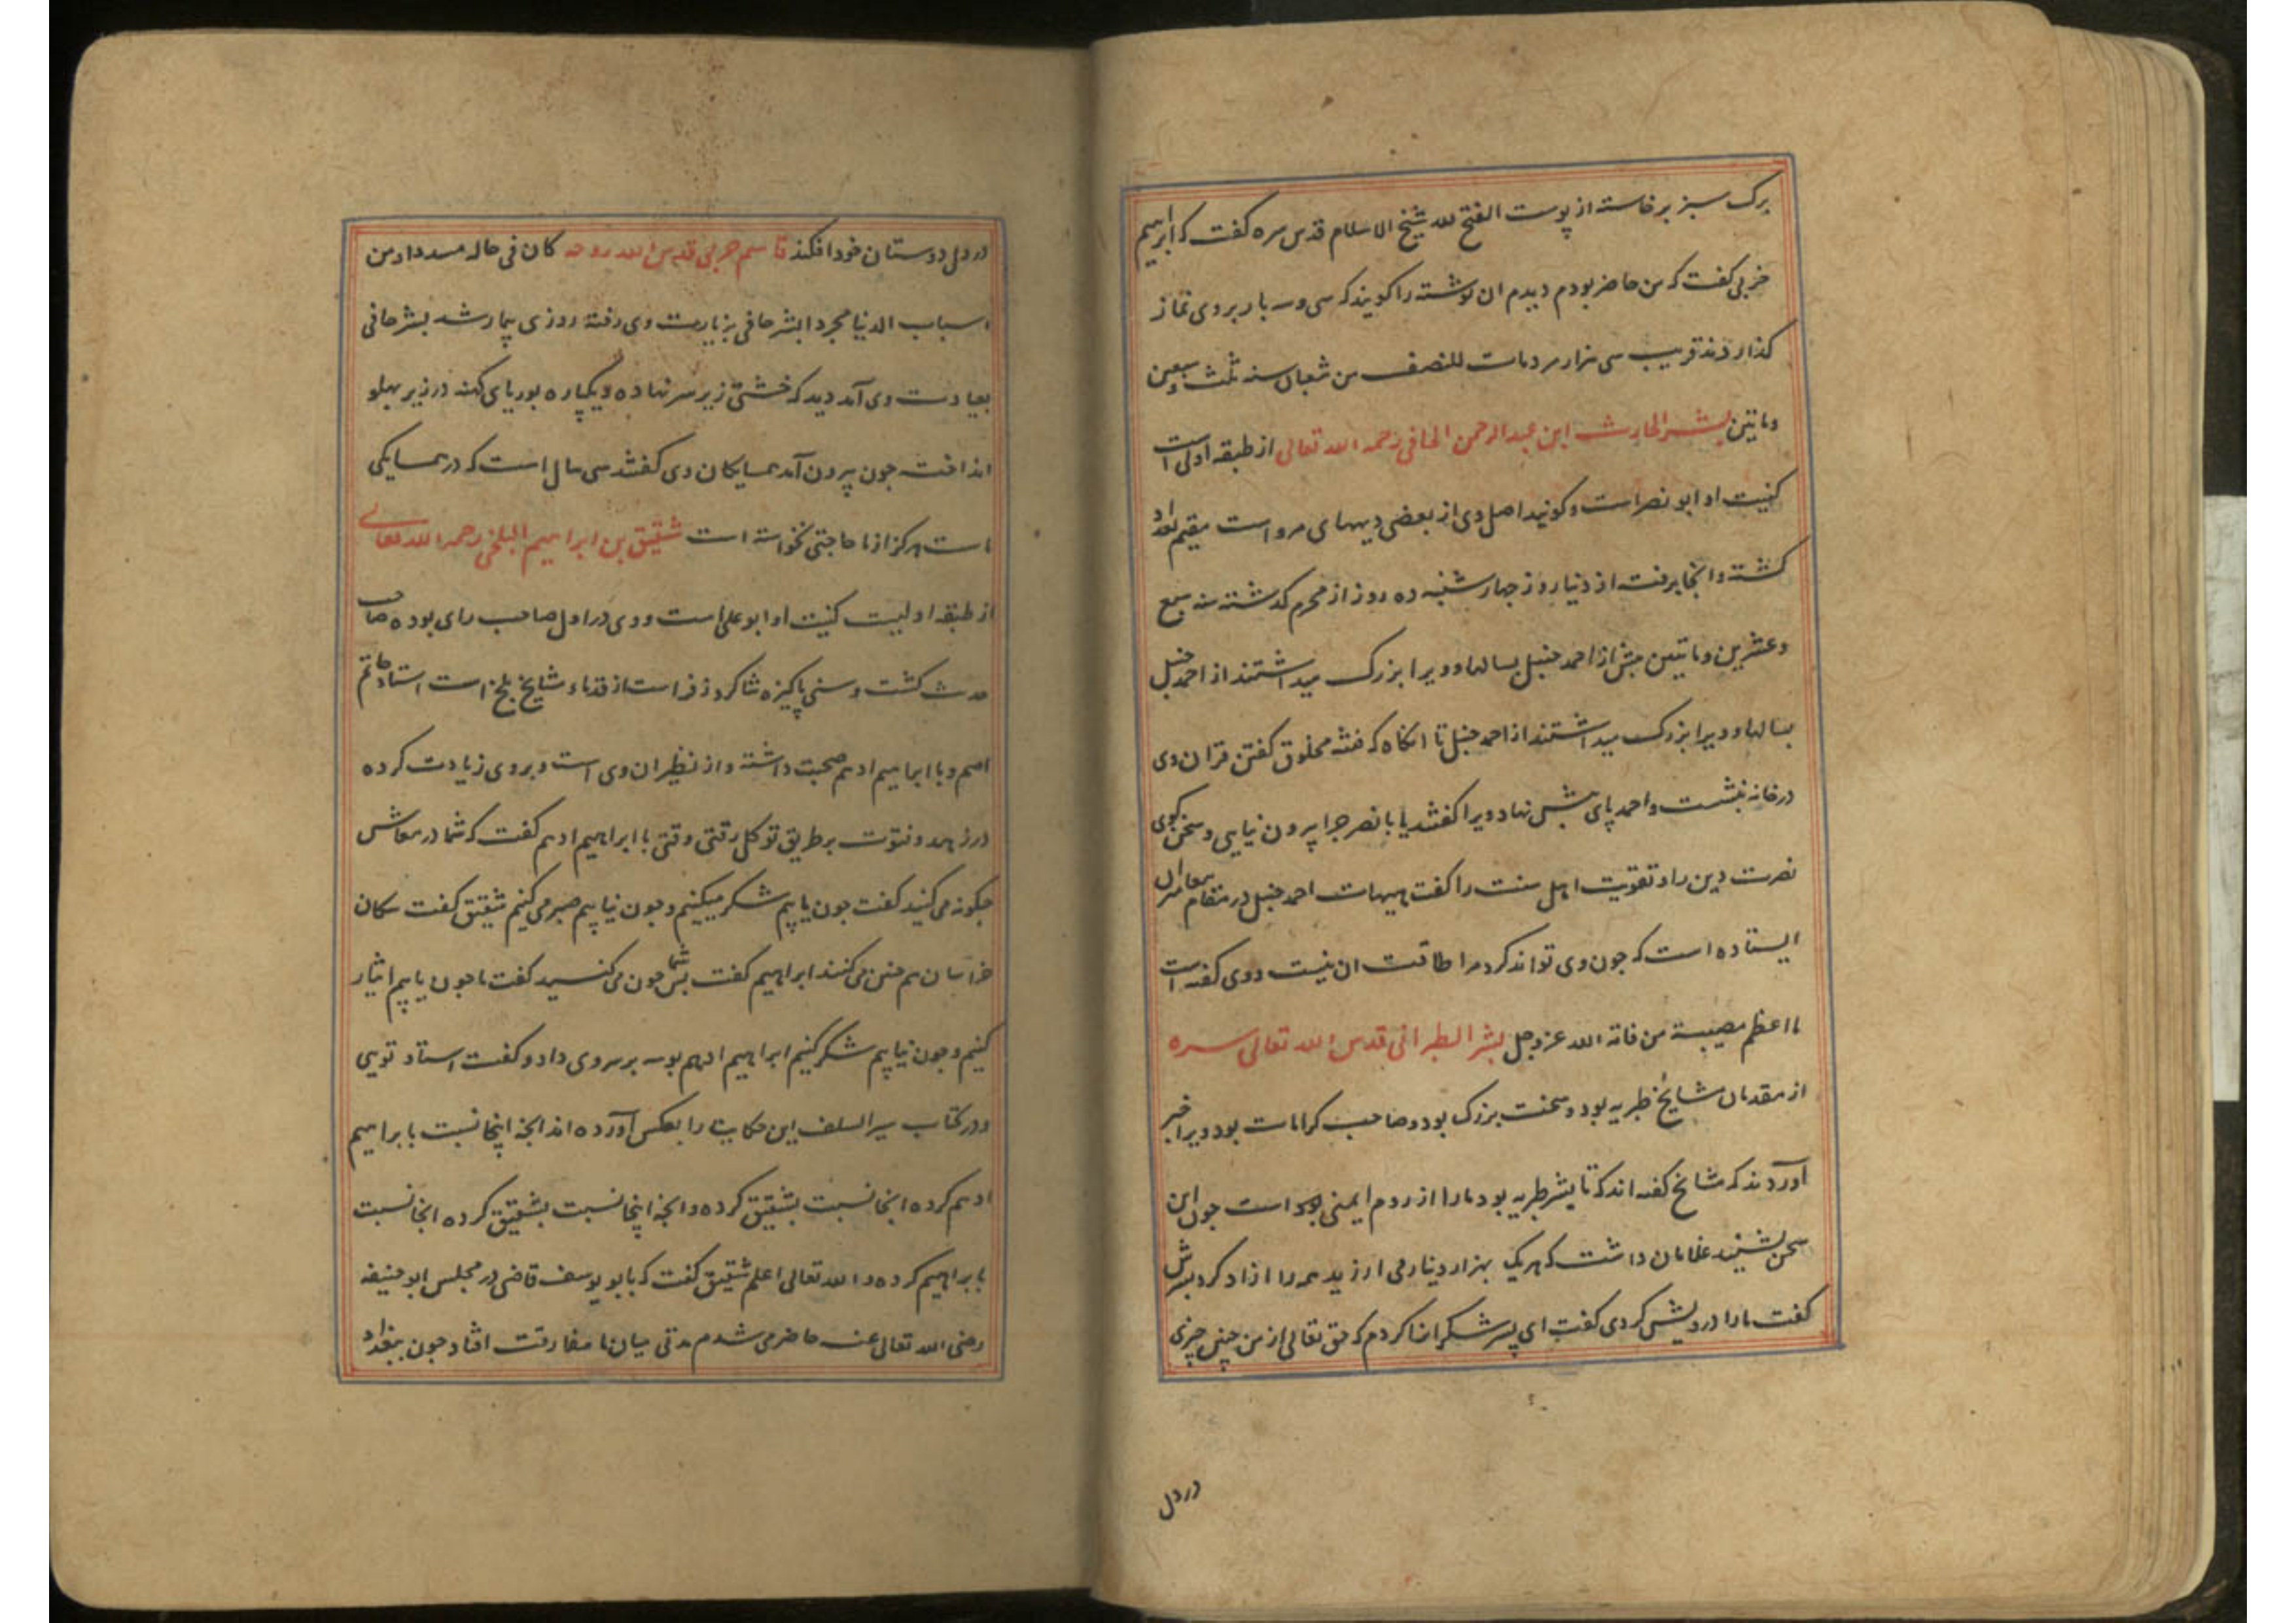 برک سبز برخاسته از پوست الفتح لله شیخ الاسلام قدس سره کفت که ابراهیم
حربی کفت که من حاضر بودم دیدم ان نوشته را کویند که سی و سه بار بر وی نماز
کذاردند قریب سی هزار مرد مات للنصف من شعبان سنه ثلث و سبعین
و ماتین بشر الحارث ابن عبد الرحمن الحافی رحمه الله تعالی از طبقه اولی است
کنیت او ابو نصر است و کویند اصل وی از بعضی دیهای مرو است مقیم بغداد
کشته و انجا برفت از دنیا روز چهارشنبه ده روز از محرم کذشته سنه سبع
و عشرین و ماتین پیش از احمد حنبل بسالها و ویرا بزرک میداشتند از احمد حنبل
بسالها و ویرا بزرک میداشتند از احمد حنبل تا انکاه که فتنه مخلوق کفتن قران وی
در خانه بنشست و احمد پای پیش نهاد ویرا کفتند یا با نصر چرا بیرون نیایی و سخن نکوی
نصرت دین را و تقویت اهل سنت را کفت هیهات احمد حنبل در مقام پیغامبران
ایستاده است که چون وی تواند کرد مرا طاقت ان نیست و وی کفته است
ما اعظم مصیبة من فاته الله عز و جل بشر الطبرانی قدس الله تعالی سره
از مقدمان مشایخ طبریه بود و سخت بزرک بود و صاحب کرامات بود ویرا خبر
آوردند که مشایخ کفته اند که تا بشر طبریه بود مارا از روم ایمنی بود است چون این
سخن بشنید غلامان داشت که هر یک بهزار دینار می ارزید همه را ازاد کرد پسرش
کفت مارا درویش کردی کفت ای پسر شکرانه کردم که حق تعالی از من چنین چیزی
در دل
در دل دوستان خود افکند قاسم حربی قدس الله روحه کان فی حاله مسددا و من
اسباب الدنیا مجردا بشر حافی بزیارت وی رفته روزی بیمار شد بشر حافی
بعیادت وی آمد دید که خشتی زیر سر نهاده و یکپاره بوریای کهنه در زیر پهلو
انداخت چون بیرون آمد همسایکان وی کفتند سی سال است که در همسایکی
ماست هرکز از ما حاجتی نخواسته است شقیق بن ابراهیم البلخی رحمه الله تعالی
از طبقه اولیست کنیت او ابو علی است و وی در اول صاحب رای بوده صاحب
حدیث کشت و سنی پاکیزه شاکرد زفر است از قدماء مشایخ بلخ است استاد حاتم
اصم و با ابراهیم ادهم صحبت داشته و از نظیران وی است و بر وی زیادت کرده
در زهد و فتوت بر طریق توکل رفتی وقتی با ابراهیم ادهم کفت که شما در معاش
چکونه می کنید کفت چون یابیم شکر میکنیم و چون نیابیم صبر می کنیم شقیق کفت سکان
خراسان هم چنین می کنند ابراهیم کفت پس شما چون می کنید کفت ما چون یابیم ایثار
کنیم و چون نیابیم شکر کنیم ابراهیم ادهم بوسه بر سر وی داد و کفت استاد تویی
و در کتاب سیر السلف این حکایت را بعکس آورده اند انچه اینجا نسبت بابراهیم
ادهم کرده انجا نسبت بشقیق کرده و انچه اینجا نسبت بشقیق کرده انجا نسبت
بابراهیم کرده و الله تعالی اعلم شقیق کفت که با ابو یوسف قاضی در مجلس ابو حنیفه
رضی الله تعالی عنه حاضر می شدم مدتی میان ما مفارقت افتاد چون ببغداد